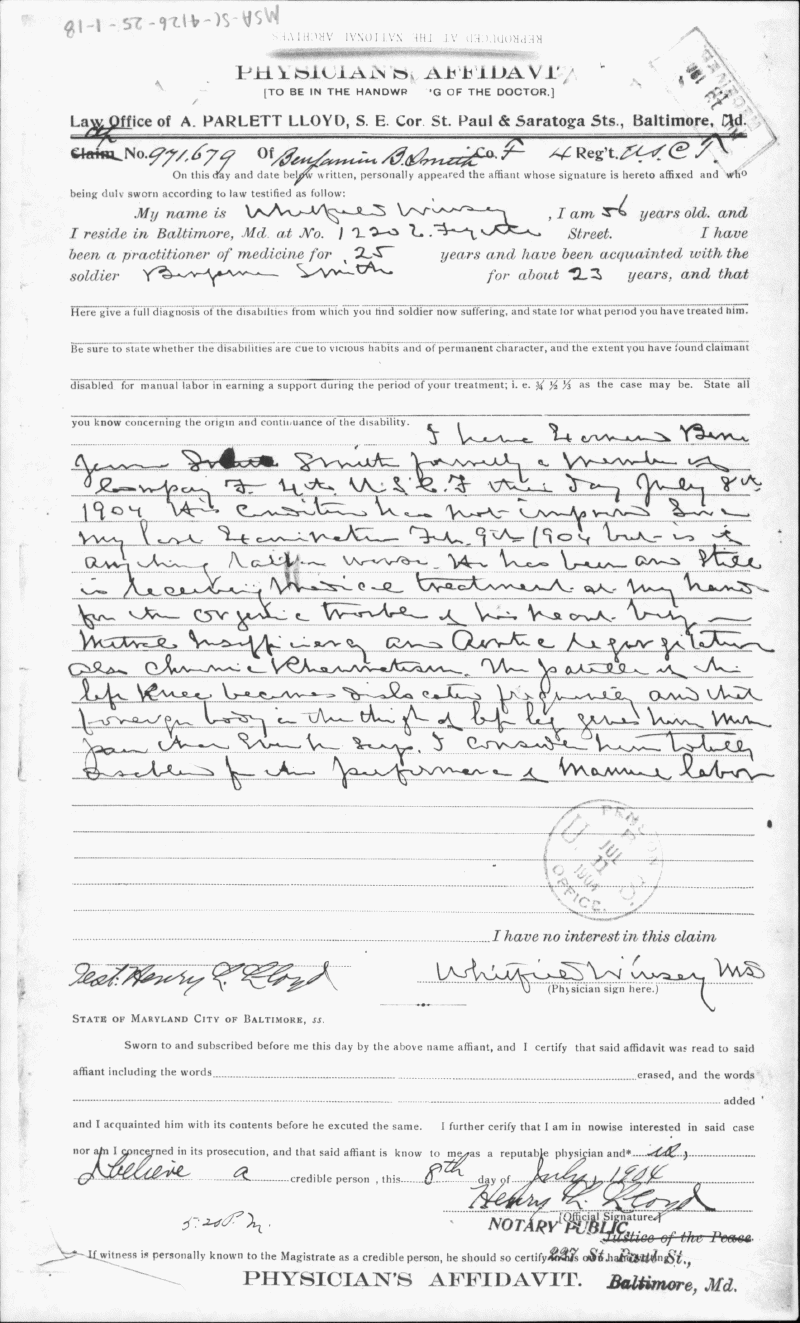 MSA-SC-4126-25-1-18
REPRODUCED AT THE NATIONAL ARCHIVES
PHYSICIAN'S AFFIDAVIT
[TO BE IN THE HANDWR 'G OF THE DOCTOR.]
Law Office of A. PARLETT LLOYD, S. E. Cor. St. Paul & Saratoga Sts., Baltimore, Md.
Claim No. 971.679 Of Benjamin B. Smith Co. F 4 Reg't. U.S.C.T.
On this day and date below written, personally appeared the affiant whose signature is hereto affixed and who
being duly sworn according to law testified as follow:
My name is Whitfield Winsey, I am 56 years old. and
I reside in Baltimore, Md. at No. 1220 E. Fayette Street. I have
been a practitioner of medicine for 25 years and have been acquainted with the
soldier Benjamin Smith for about 23 years, and that
Here give a full diagnosis of the disabilties from which you find soldier now suffering, and state for what period you have treated him.
Be sure to state whether the disabilities are due to vicious habits and of permanent character, and the extent you have found claimant
disabled for manual labor in earning a support during the period of your treatment; i. e. ¾ ½ ⅓ as the case may be. State all
you know concerning the origin and continuance of the disability.
I have Examined Benj
Smith formerly a member of
Company F. 4th U.S.C.T this day July 8th
1904 His Condition has not improved Since
my last Examination Feb. 9th 1904 but is if
anything rather worse. He has been and still
is receiving medical treatment at my hands
for the organic trouble of his heart being
Mitral Insufficiency and Aortic regurgitation
also Chronic Rheumatism. The patella of the
left Knee becomes dislocated frequently and that
foreign body in the thigh of left leg gives him more
pain than Even he says. I consider him totally
disabled for the performance of Manual labor
PENSION OFFICE
U. S.
JUL 11 1904
I have no interest in this claim
Test: Henry L. Lloyd Whitfield Winsey MD
(Physician sign here.)
STATE OF MARYLAND CITY OF BALTIMORE, ss.
Sworn to and subscribed before me this day by the above name affiant, and I certify that said affidavit was read to said
affiant including the words erased, and the words
added
and I acquainted him with its contents before he excuted the same. I further cerify that I am in nowise interested in said case
nor am I concerned in its prosecution, and that said affiant is know to me as a reputable physician and* is,
I believe a credible person, this 8th day of July, 1904
Henry L. Lloyd
[Official Signature.]
5.20 P.M. NOTARY PUBLIC. Justice of the Peace
* If witness is personally known to the Magistrate as a credible person, he should so certify in his own handwriting. 227 St. Paul St.,
PHYSICIAN'S AFFIDAVIT. Baltimore, Md.